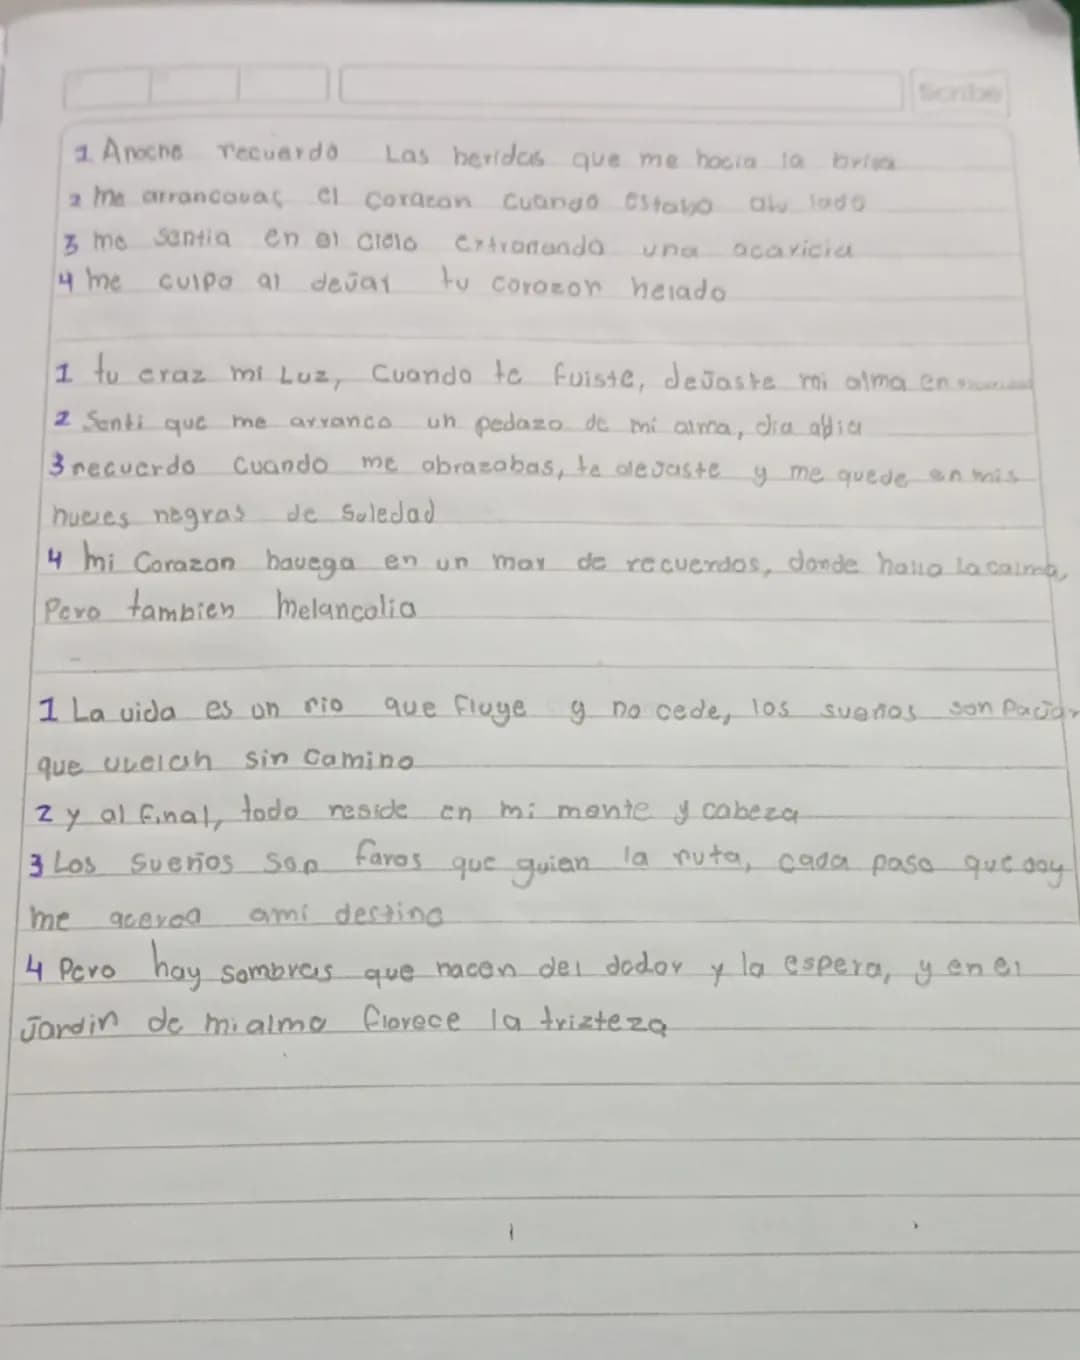 Scribe
1. Anoche recuerdo Las heridas que me hacia la brisa
2 me arrancavas el corazon cuando estabo au lado
3 me sentia en el cielo extrañando una acaricia
4 me culpo al dejar tu corazon helado
1 tu eraz mi Luz, Cuando te fuiste, dejaste mi alma en
2 Senti que me arranco un pedazo de mi alma, dia adia
3 recuerdo cuando me abrazabas, te dejaste y me quede en mis
nuves negras de Soledad
4 mi Corazon navega en un mar de recuerdos, donde hallo la calma,
Pero tambien melancolia
1 La vida es un rio que fluye y no cede, los sueños son
que vuelan sin camino
2 y al final, todo reside en mi mente y cabeza
3 Los Sueños son faros que guian la ruta, cada paso que doy
me acerca ami destino
4 Pero hay sombras que nacen del dodor y la espera, y en el
Jardin de mi alma florece la trizteza